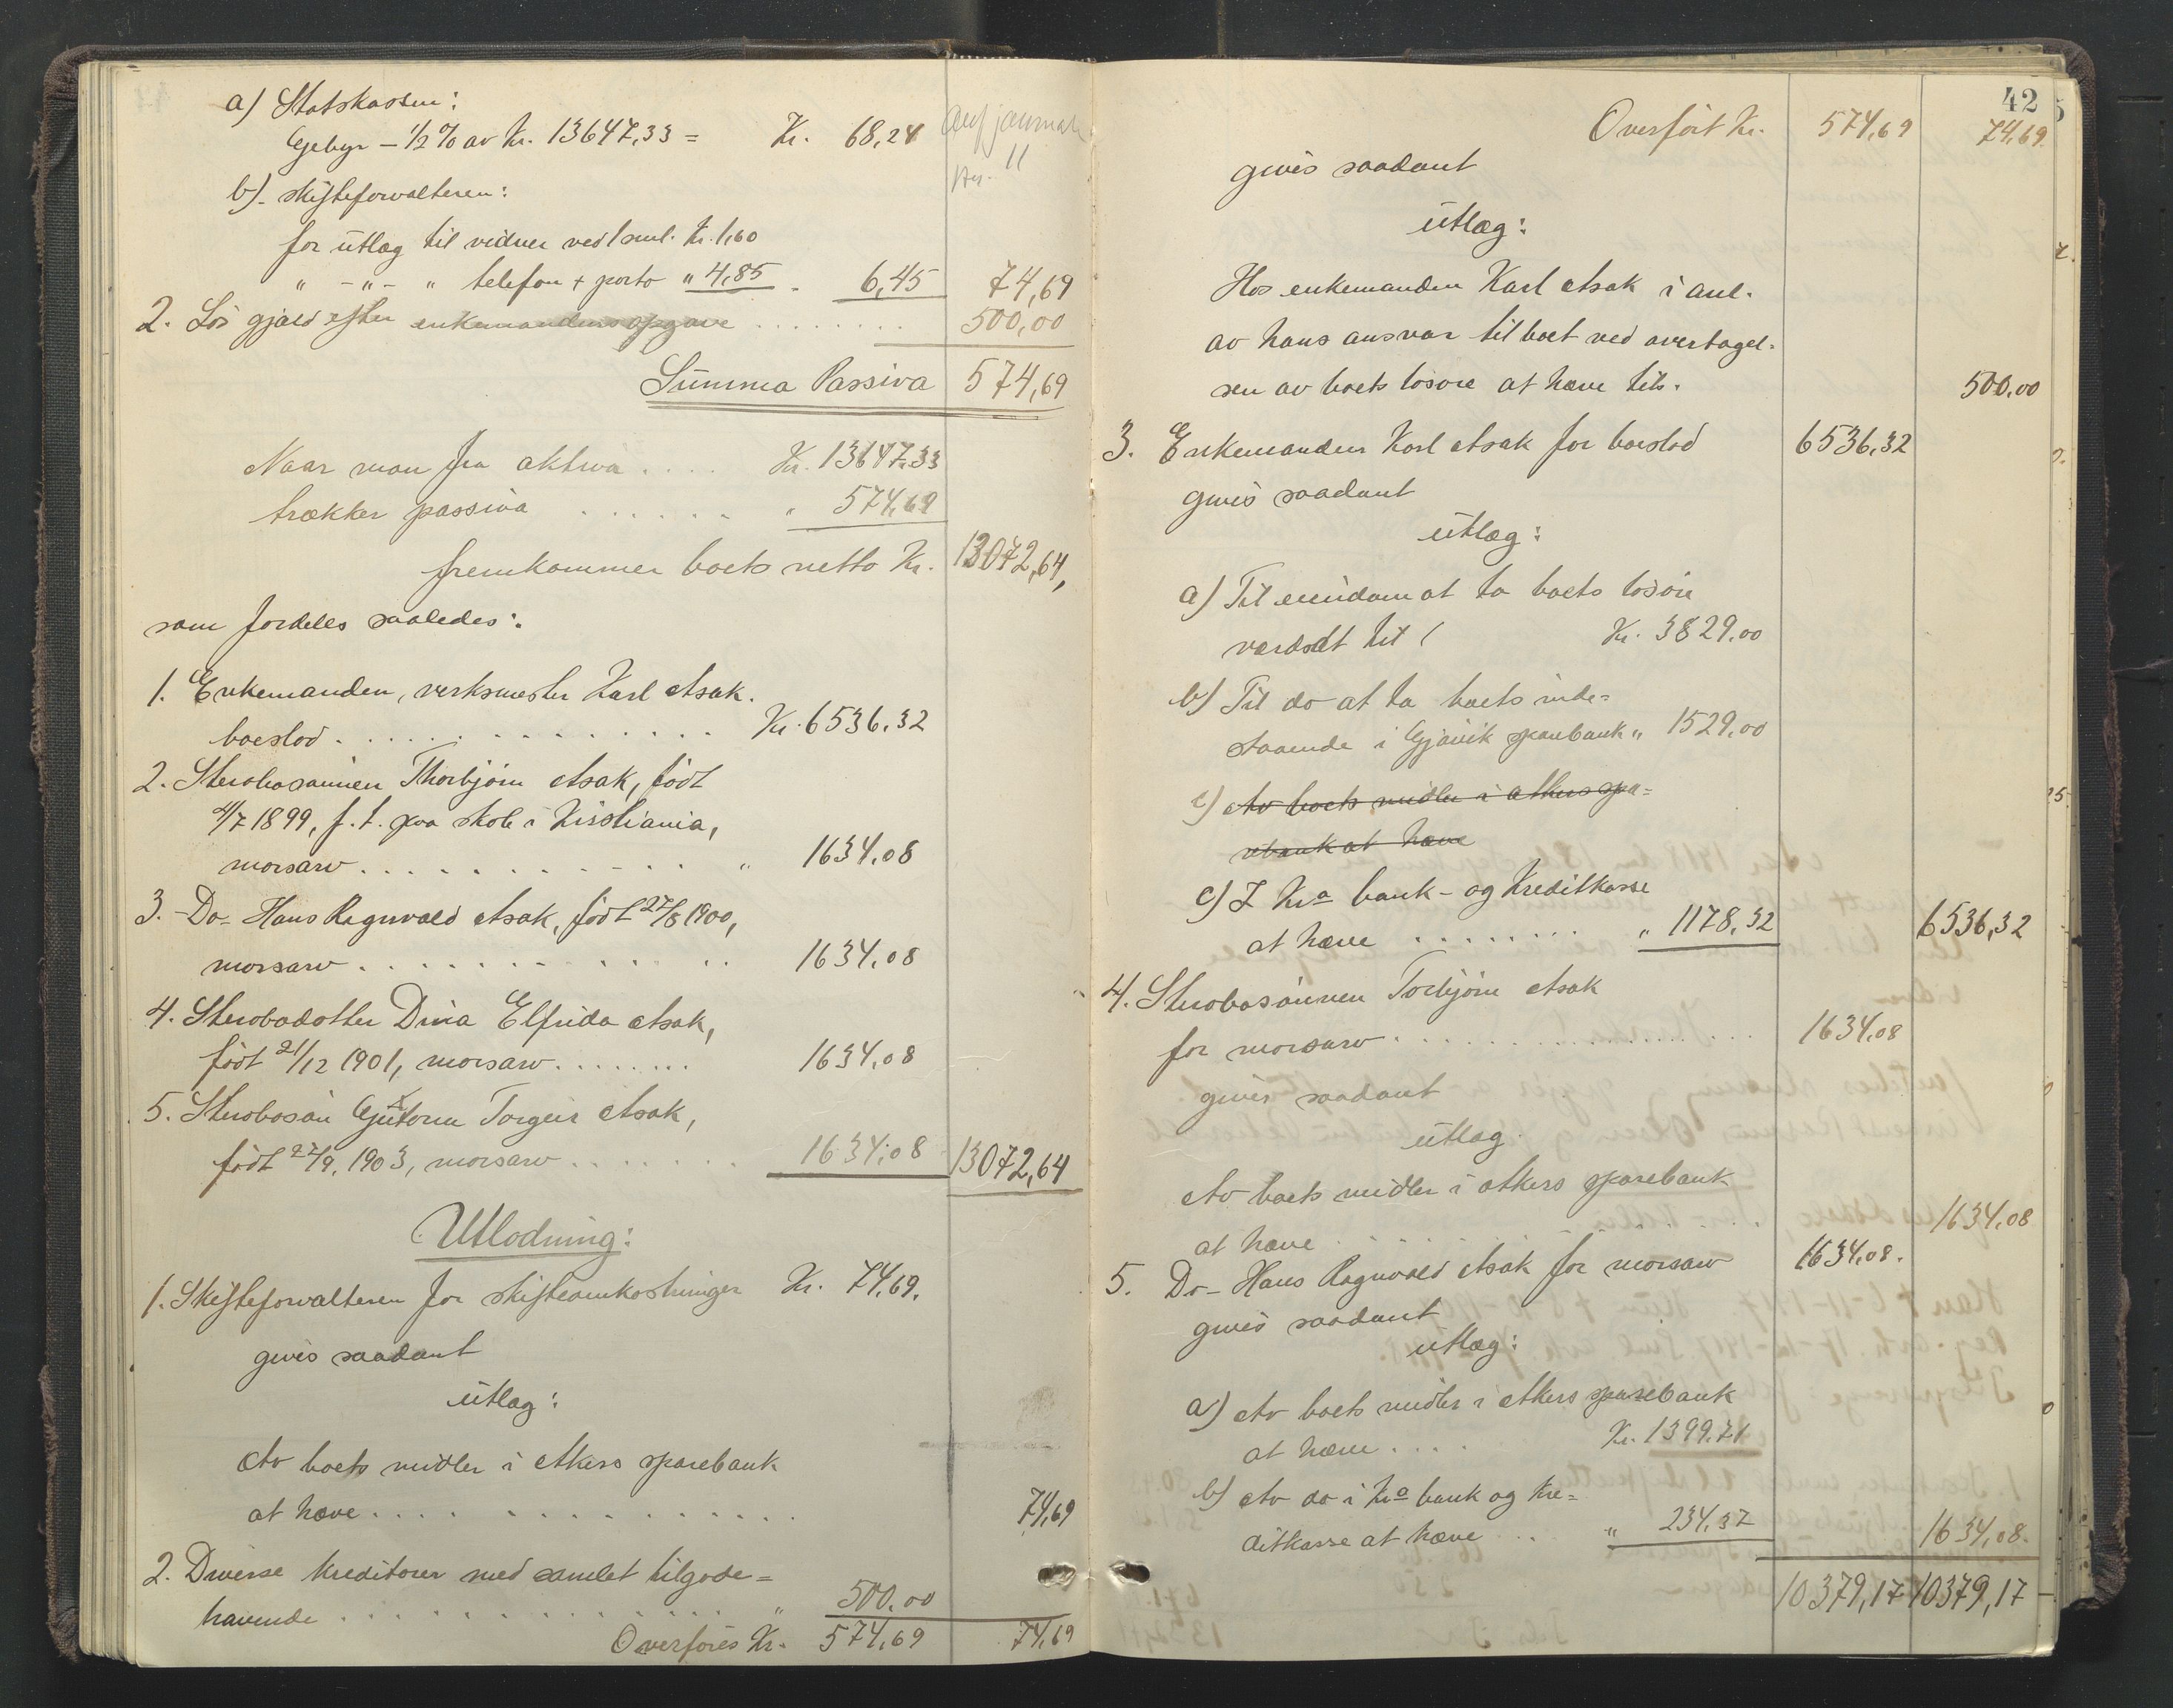 a) Statskassen:
Gebyr – 1/2 % av Kr. 13647,33 = Kr. 68,24
b). skifteforvalteren:
for utlæg til vidner ved 1 saml. Kr. 1,60
" -"- " telefon + porto " 4,85 - 6,45 74,69
2. Løs gjæld efter enkemandens opgave ........ 500,00
Summa Passiva 574,69
Naar man fra aktiva .... Kr. 13647.33
trækker passiva ...... " 574,69
fremkommer boets netto Kr. 13072,64,
som fordeles saaledes:
1. Enkemanden, verksmester Karl Asak.
boeslod .............. Kr. 6536,32
2. Sterbosønnen Thorbjørn Asak, født
4/7 1899, f.t. paa skole i Kristiania,
morsarv ........... " 1634.08
3. -Do- Hans Ragnvald Asak, født 27/8 1900,
morsarv ............ 1634.08
4. Sterbodatter Dina Elfrida Asak,
født 21/12 1901, morsarv ........ 1634.08
5. Sterbosøn Guttorm Torgeir Asak,
født 27/9. 1903, morsarv ....... 1634.08 13072,64
Utlodning:
1. Skifteforvalteren for skifteomkostninger Kr. 74,69.
gives saadant
utlæg:
Av boets midler i Akers sparebank
at hæve ............. 74,69
2. Diverse kreditorer med samlet tilgode=
havende ............. " 500.00
Overføres Kr. 574,69 74,69
42
Overført Kr. 574,69 74,69.
gives saadant
utlæg:
Hos enkemanden Karl Asak i anl.
av hans ansvar til boet ved overtagel-
sen av boets løsøre at hæve 500.00
3. Enkemanden Karl Asak for boeslod 6536,32
gives saadant
utlæg:
a) Til eiendom at ta boets løsøre
værdsat til Kr. 3829.00
b) Til do at ta boets inde=
staaende i Gjøvik sparebank " 1529,00
c) Av boets midler i Akers spa=
rebank at hæve
c) I Kra bank- og Kreditkasse
at hæve ........ " 1178,32 6536,32
4. Sterbosønnen Torbjørn Asak
for morsarv ................ 1634.08
gives saadant
utlæg.
Av boets midler i Akers sparebank
at hæve ........... 1634.08
5. -Do- Hans Ragnvald Asak for morsarv 1634.08.
gives saadant
utlæg:
a) Av boets midler i Akers sparebank
at hæve .... Kr. 1399.71
b) Av do i Kra bank og Kre=
ditkasse at hæve ... " 234,37 1634,08.
10379,17 10379,17